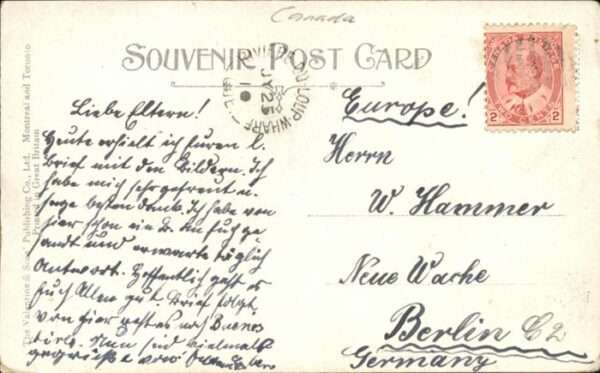 Canada
SOUVENIR POST CARD
RIVIERE DU LOUP WHARF
JY 25
QUE
2 2
Europe!
Herrn
W. Hammer
Neue Wache
Berlin C2
Germany
Liebe Eltern!
Heute erhielt ich Euren l.
Brief mit den Bildern. Ich
habe mich sehr gefreut u.
sage besten Dank. Ich habe von
hier schon ein
sandt und erwarte täglich
Antwort. Hoffentlich geht es
Euch Allen gut. Brief folgt.
Von hier geht es nach Buenos
Aires. Nun seid vielmals
gegrüßt von
The Valentine & Sons' Publishing Co., Ltd. Montreal and Toronto
Printed in Great Britain